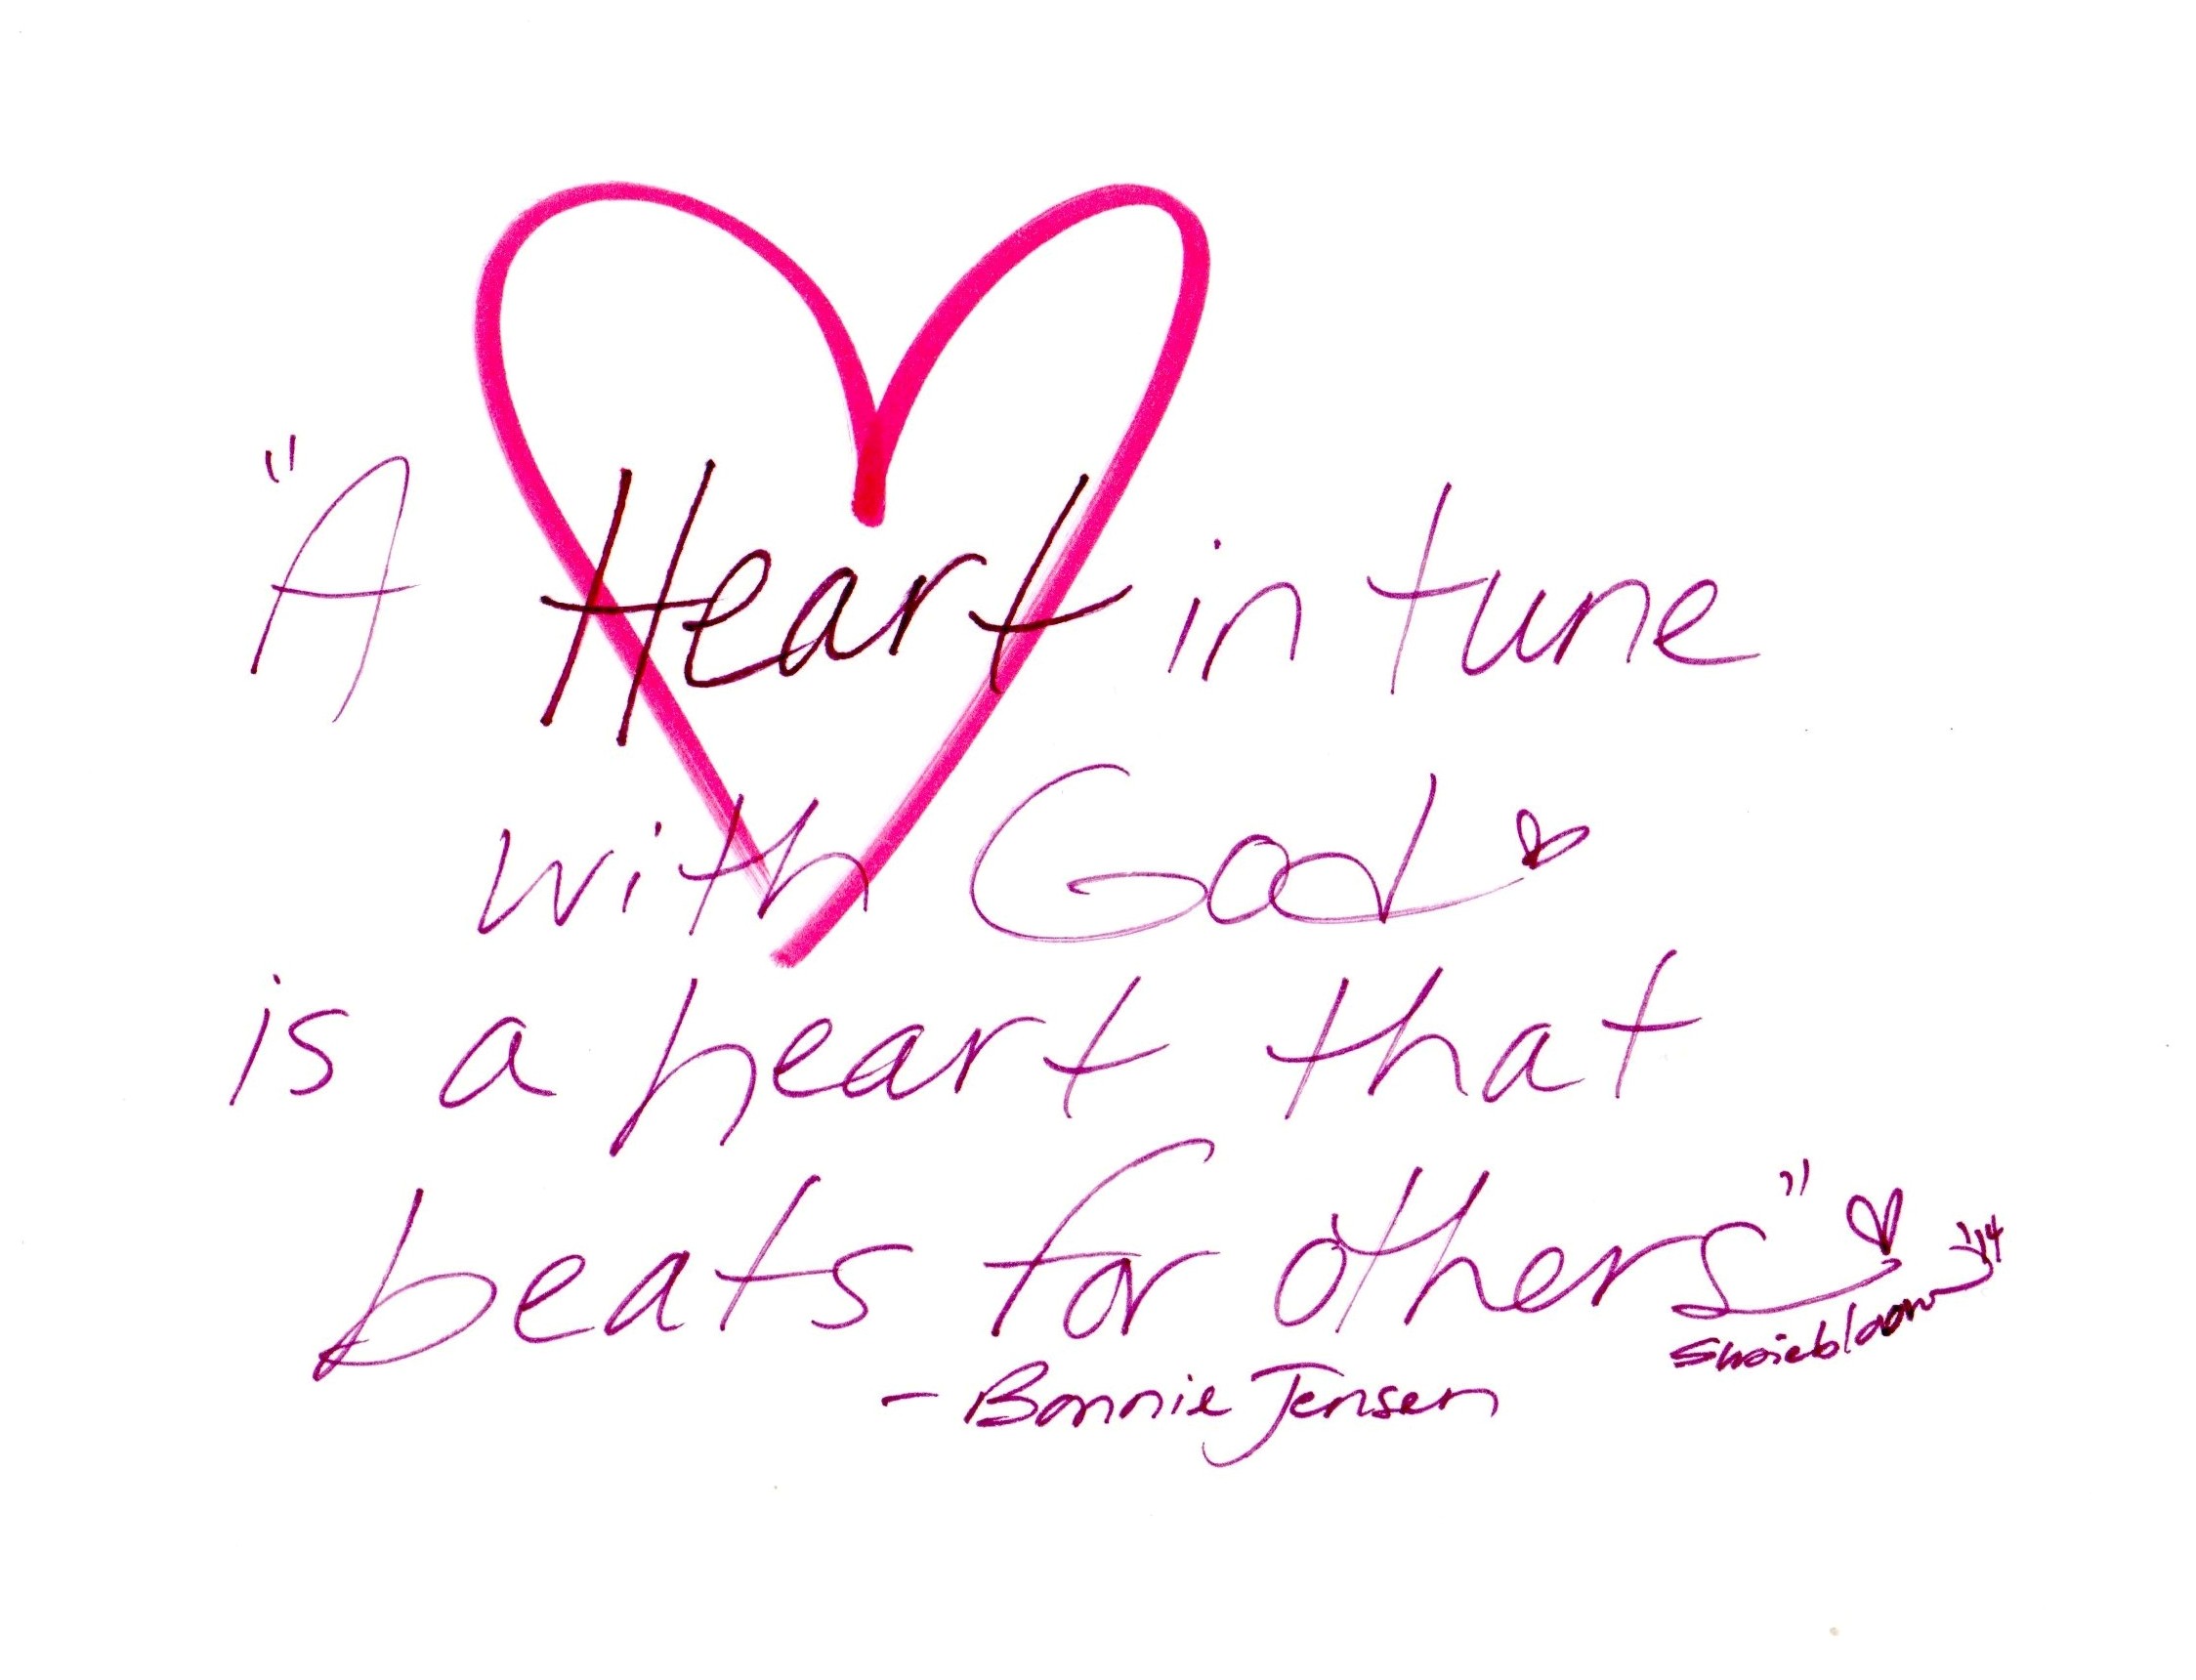 "A Heart in tune
with God
is a heart that
beats for others"
- Bonnie Jensen